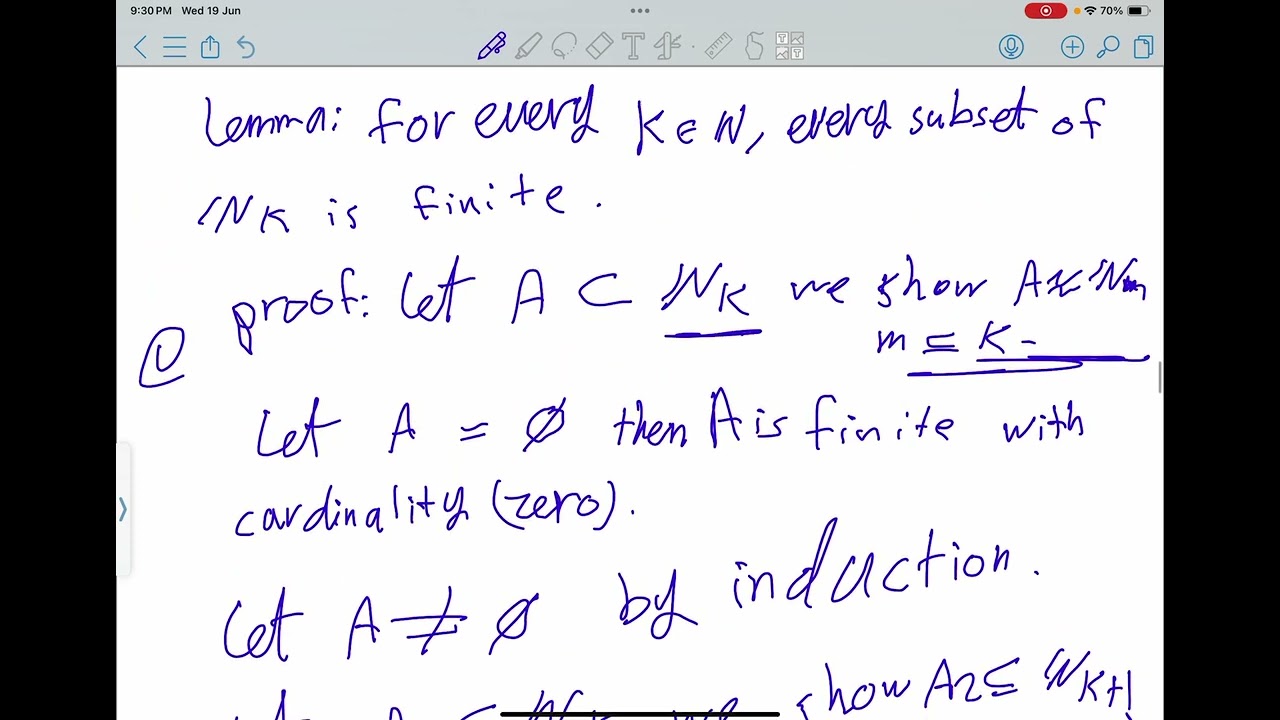 9:30 PM Wed 19 Jun
70%
Lemma: for every K ∈ N, every subset of
ℕK is finite.
proof: Let A ⊂ ℕK we show A ≈ ℕm
m ≤ K
Let A = ∅ then A is finite with
cardinality (zero).
Let A ≠ ∅ by induction.
show A2 ⊆ ℕK+1